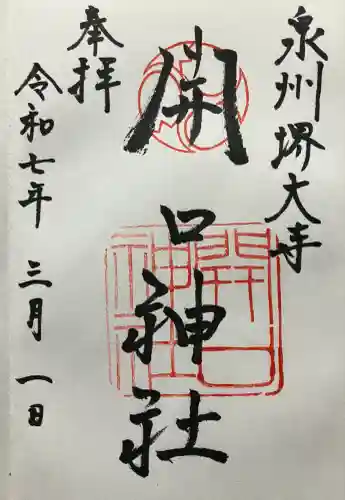 泉州堺大寺
開口神社
奉拝
令和七年三月一日
開口
神社